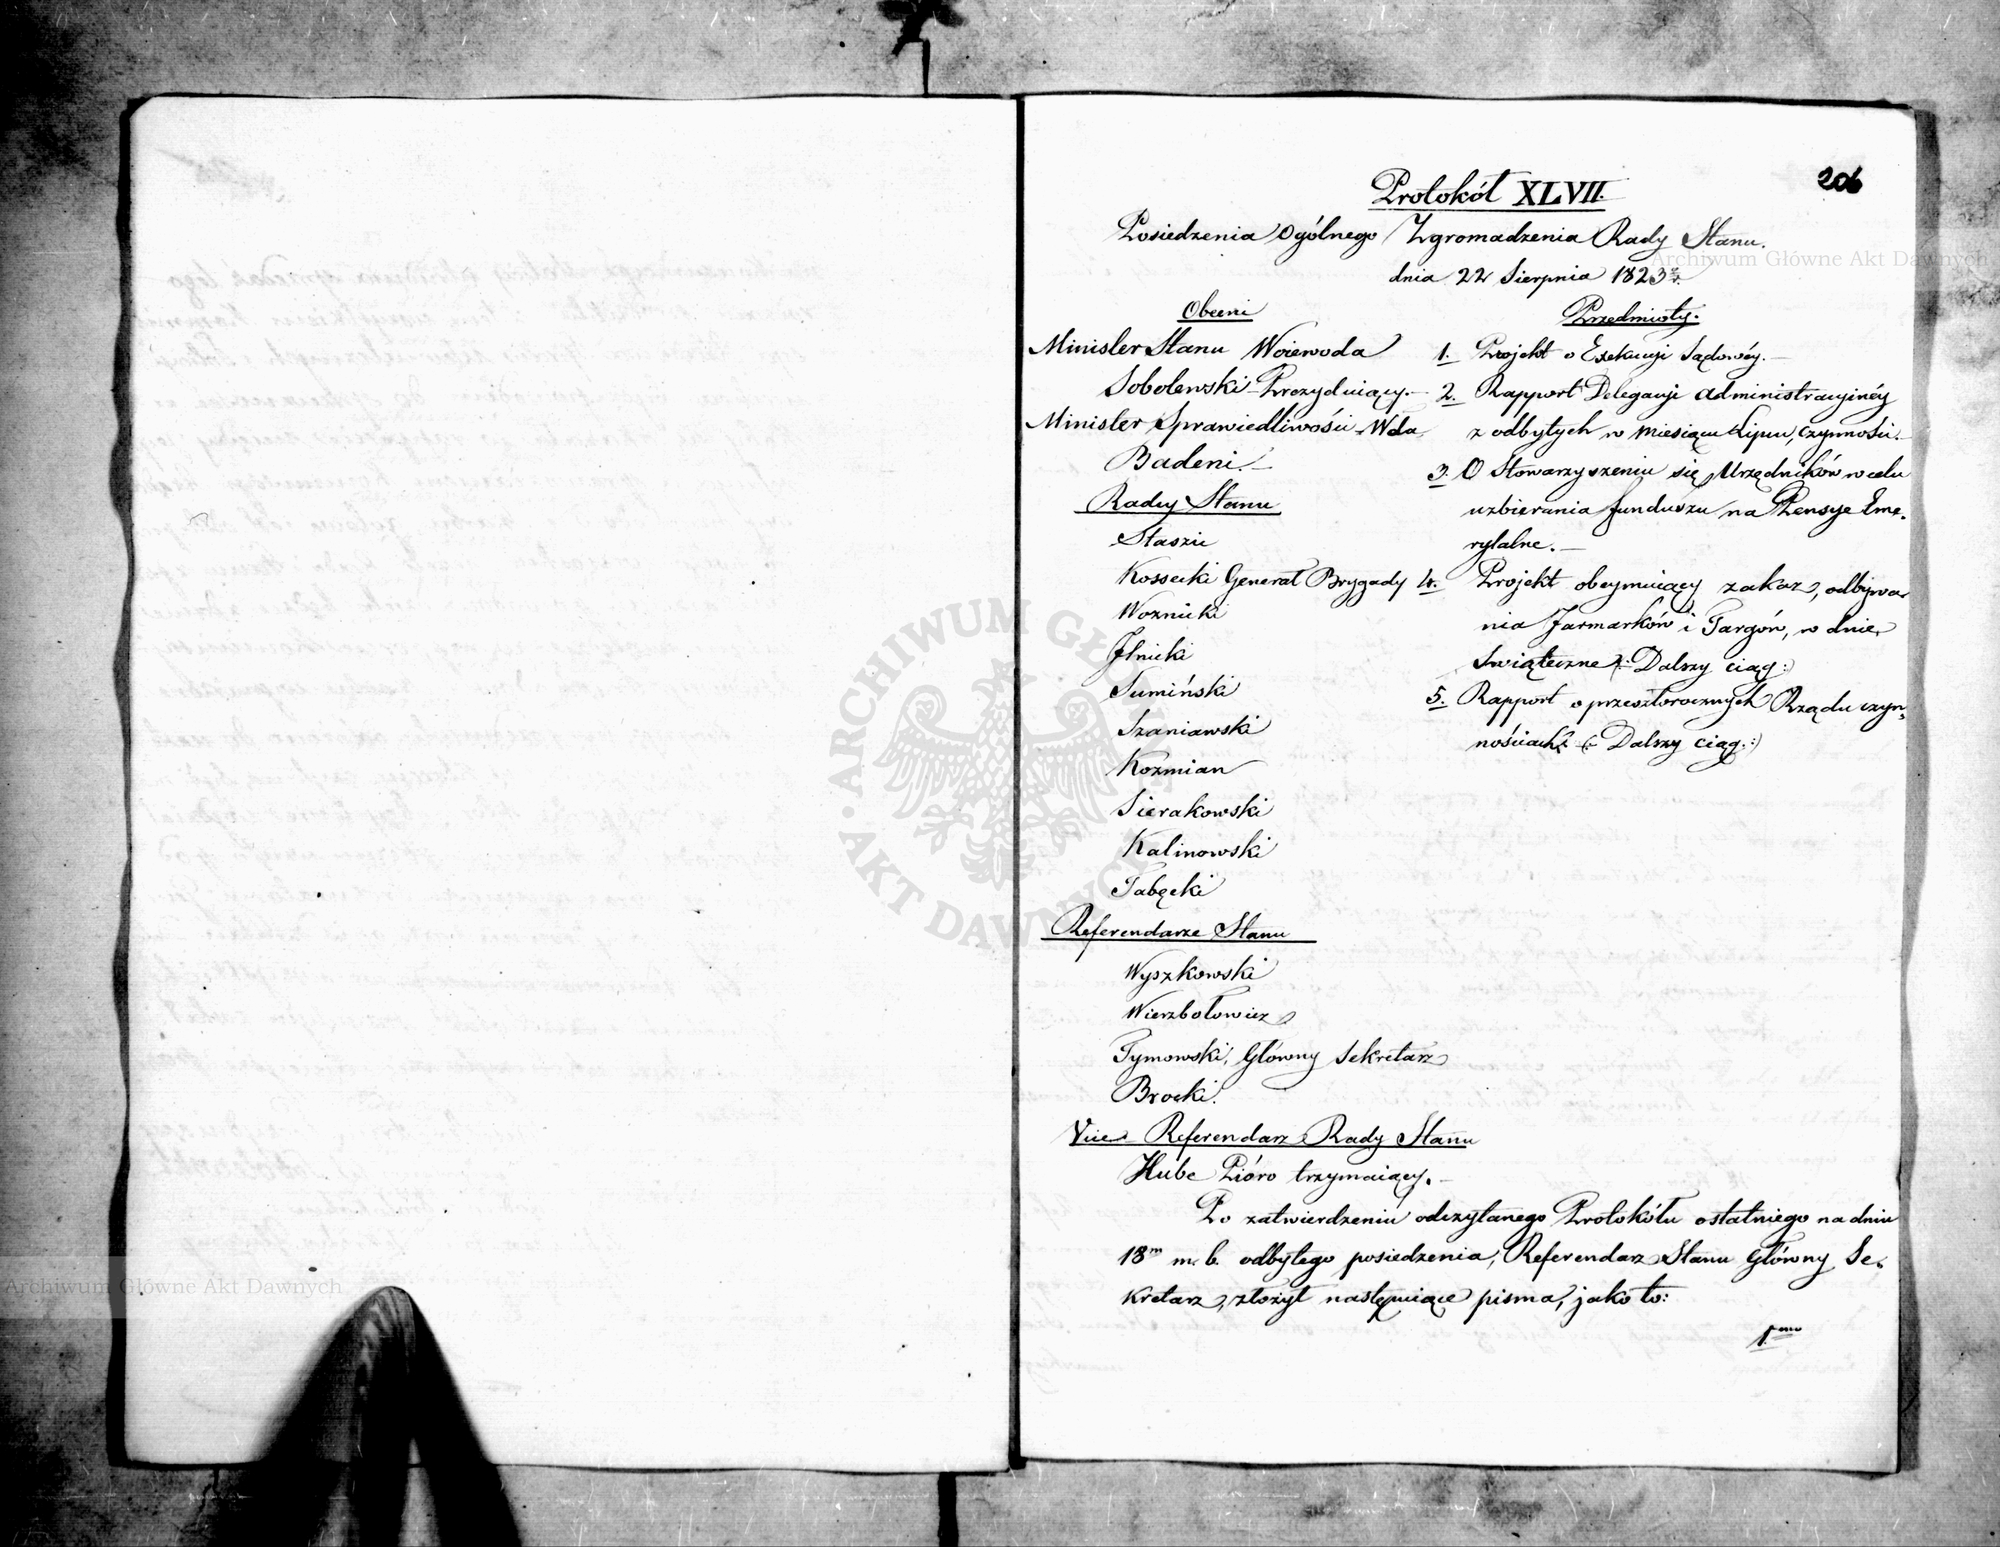 206
Protokół XLVII.
Posiedzenia Ogólnego Zgromadzenia Rady Stanu.
dnia 22 Sierpnia 1823 r.
Obecni
Minister Stanu Woiewoda
Sobolewski Prezyduiący.
Minister Sprawiedliwości Wda
Badeni.
Radcy Stanu
Staszic
Kossecki Generał Brygady
Woznicki
Jlnicki
Sumiński
Szaniawski
Koźmian
Sierakowski
Kalinowski
Tabęcki
Referendarze Stanu
Wyszkowski
Wierzbołowicz
Tymowski, Główny Sekretarz
Brocki.
Vice Referendarz Rady Stanu
Hube Pióro trzymaiący.
Przedmioty.
1. Projekt o Exekucyi Sądowéy.
2. Rapport Delegacyi administracyinéy
z odbytych w miesiącu Lipcu, czynności.
3. O Stowarzyszeniu się Urzędników w celu
uzbierania funduszu na Pensye Eme-
rytalne.
4. Projekt obeymuiący zakaz, odbywa-
nia Jarmarków i Targów, w dnie
Swiąteczne (: Dalszy ciąg :)
5. Rapport o przeszłorocznych Rządu czyn-
nościach (: Dalszy ciąg :)
Po zatwierdzeniu odczytanego Protokółu ostatniego na dniu
18m m. b. odbytego posiedzenia, Referendarz Stanu Główny Se-
kretarz, złożył następuiące pisma, jako to:
1mo
Archiwum Główne Akt Dawnych
Archiwum Główne Akt Dawnych
ARCHIWUM GŁÓWNE AKT DAWNYCH